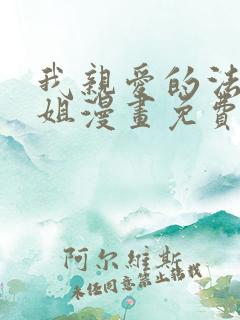 我親愛的法
姐漫畫免費
阿尔維斯
未任同意禁止转载